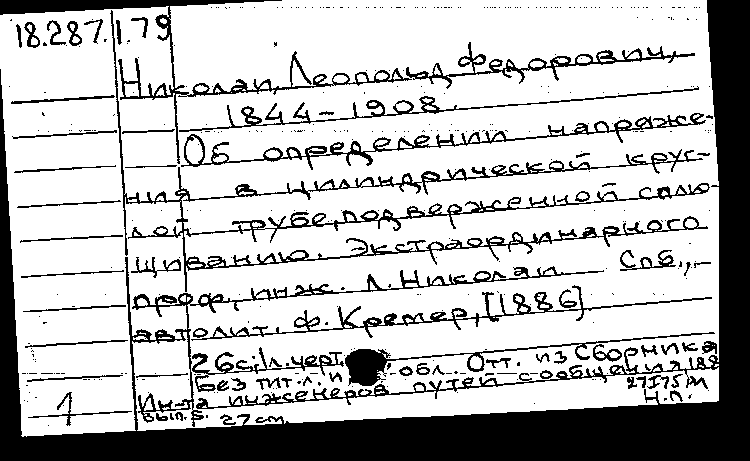 18.287.1.79
Николаи, Леопольд Федорович,
1844-1908.
Об определении напряже-
ния в цилиндрической круг-
лой трубе, подверженной сплю-
щиванию. Экстраординарного
проф., инж. Л. Николаи Спб.,
автолит. Ф. Кремер, [1886].
26 с., 1 л. черт.
Без тит. л. и обл. Отт. из Сборника
Ин-та инженеров путей сообщения, 188
вып. 5. 27 см.
Н.П.
1